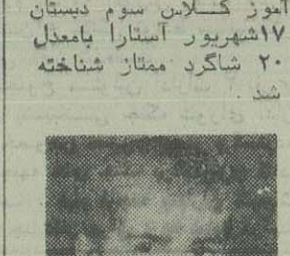 آموز کلاس سوم دبستان
۱۷شهریور آستارا بامعدل
۲۰ شاگرد ممتاز شناخته
شد .